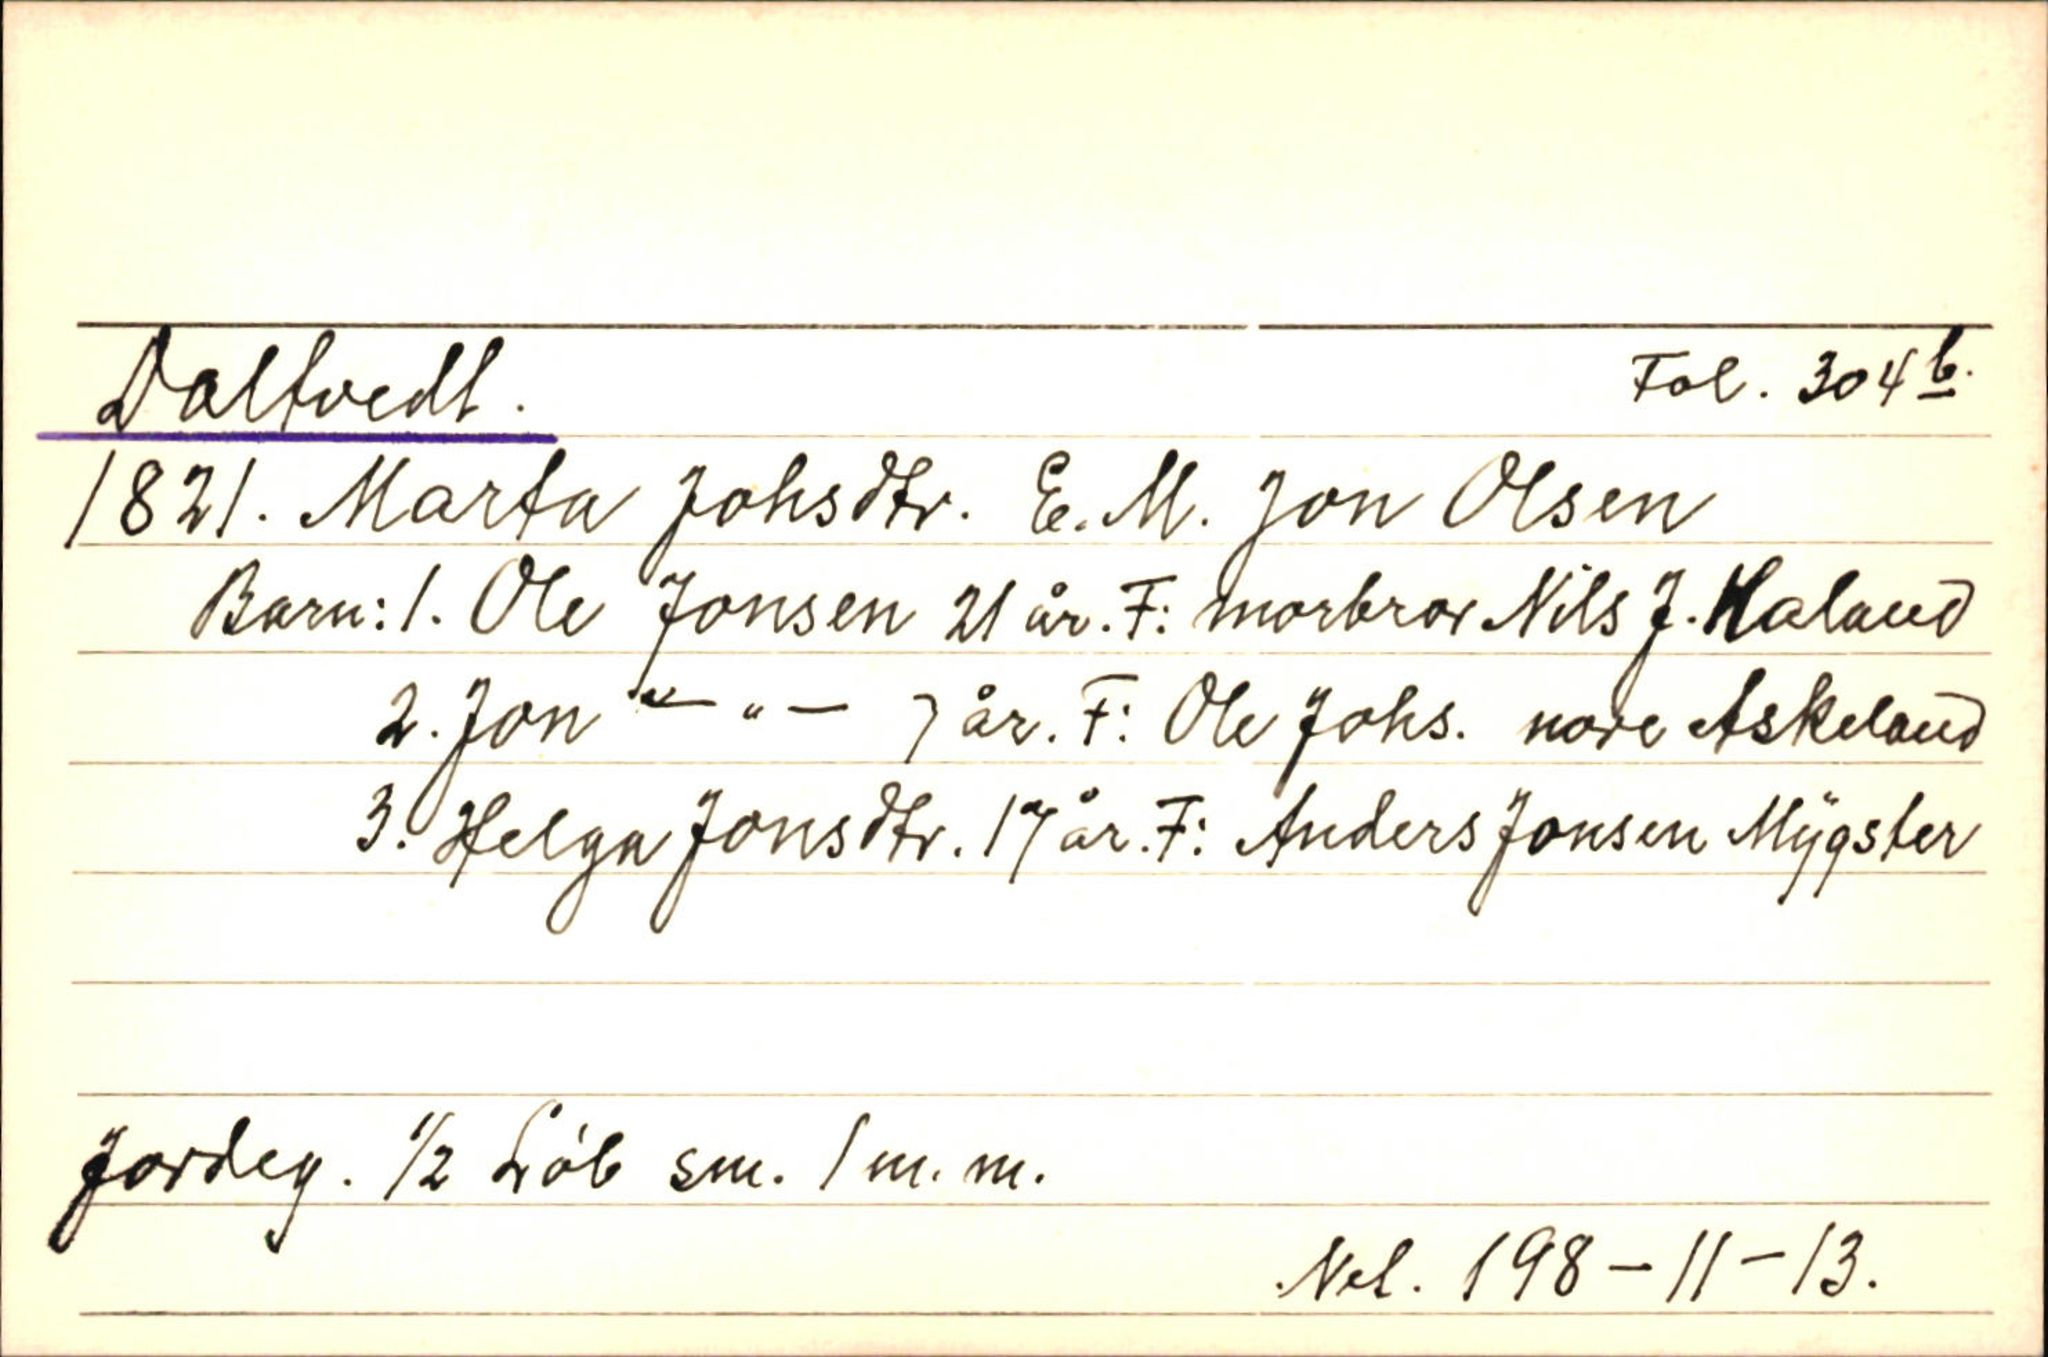 Daltvedt. Fol. 304 b.
1821. Marta Johsdtr. E. M. Jon Olsen
Barn: 1. Ole Jonsen 21 år. F: morbror Nils J. Haland
2. Jon — " — 7 år. F: Ole Johs. nore Askeland
3. Helga Jonsdtr. 17 år. F: Anders Jonsen Mÿgster
Jordeg. 1/2 Löb sm. 1 m. m.
Net. 198 - 11 - 13.